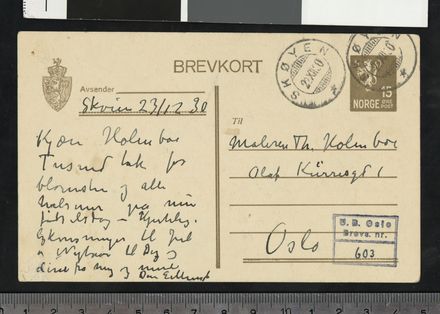 BREVKORT
SKØYEN
23.XII.30
15 ØRE
NORGE
POST
Avsender
Skøien 23/12 30
Kjære Holmboe
Tusind tak for
blomster og alle
fra min
fødselsdag – Hjertelig
til Jul
og Nytaar til Dig og
dine fra mig og mine
Din
Til
Maleren Th. Holmboe
Olaf Kyrresgt 1
Oslo
U.B. Oslo
Brevs. nr.
603